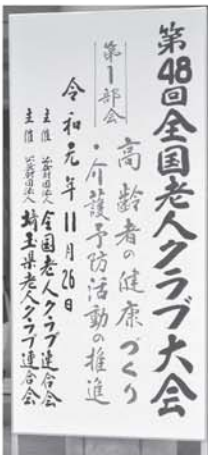 第48回全国老人クラブ大会
第1部会
高齢者の健康づくり
・介護予防活動の推進
令和元年11月26日
主催 公益財団法人 全国老人クラブ連合会
主催 公益財団法人 埼玉県老人クラブ連合会